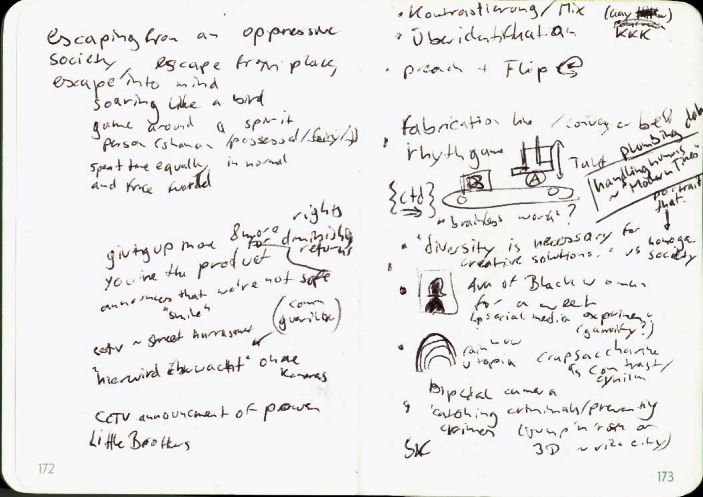 escaping from an oppressive
society, escape from place,
escape into mind
soaring like a bird
game around a spirit
person (shaman /possessed/
spent time equally in normal
and world
giving up more & more rights
for diminishing returns
you're the product
announces that we're not safe
"smile"
(comm
guerilla)
cctv ~ street
"hier wird bewacht" ohne
Kameras
CCTV announcement of power
Little Brothers
172
• Kontrastierung / Mix (gay
KKK
• Überidentifikation
• preach + Flip
fabrication line / conveyor belt
• rhythm game
Take plumbing job
handling humans
~ "Modern Times"
portrait
that
{ctd}
A
"brainless work"?
• "diversity is necessary for
creative solutions" vs homoge.
society
• Ava of Black woman
for a week
social media experiment
(gamify?)
• rainbow
utopia crapsaccharine
contrast/
Bipedal camera
• catching criminals/preventing
crimes (jump'n'run or
3D ~ vice city)
173